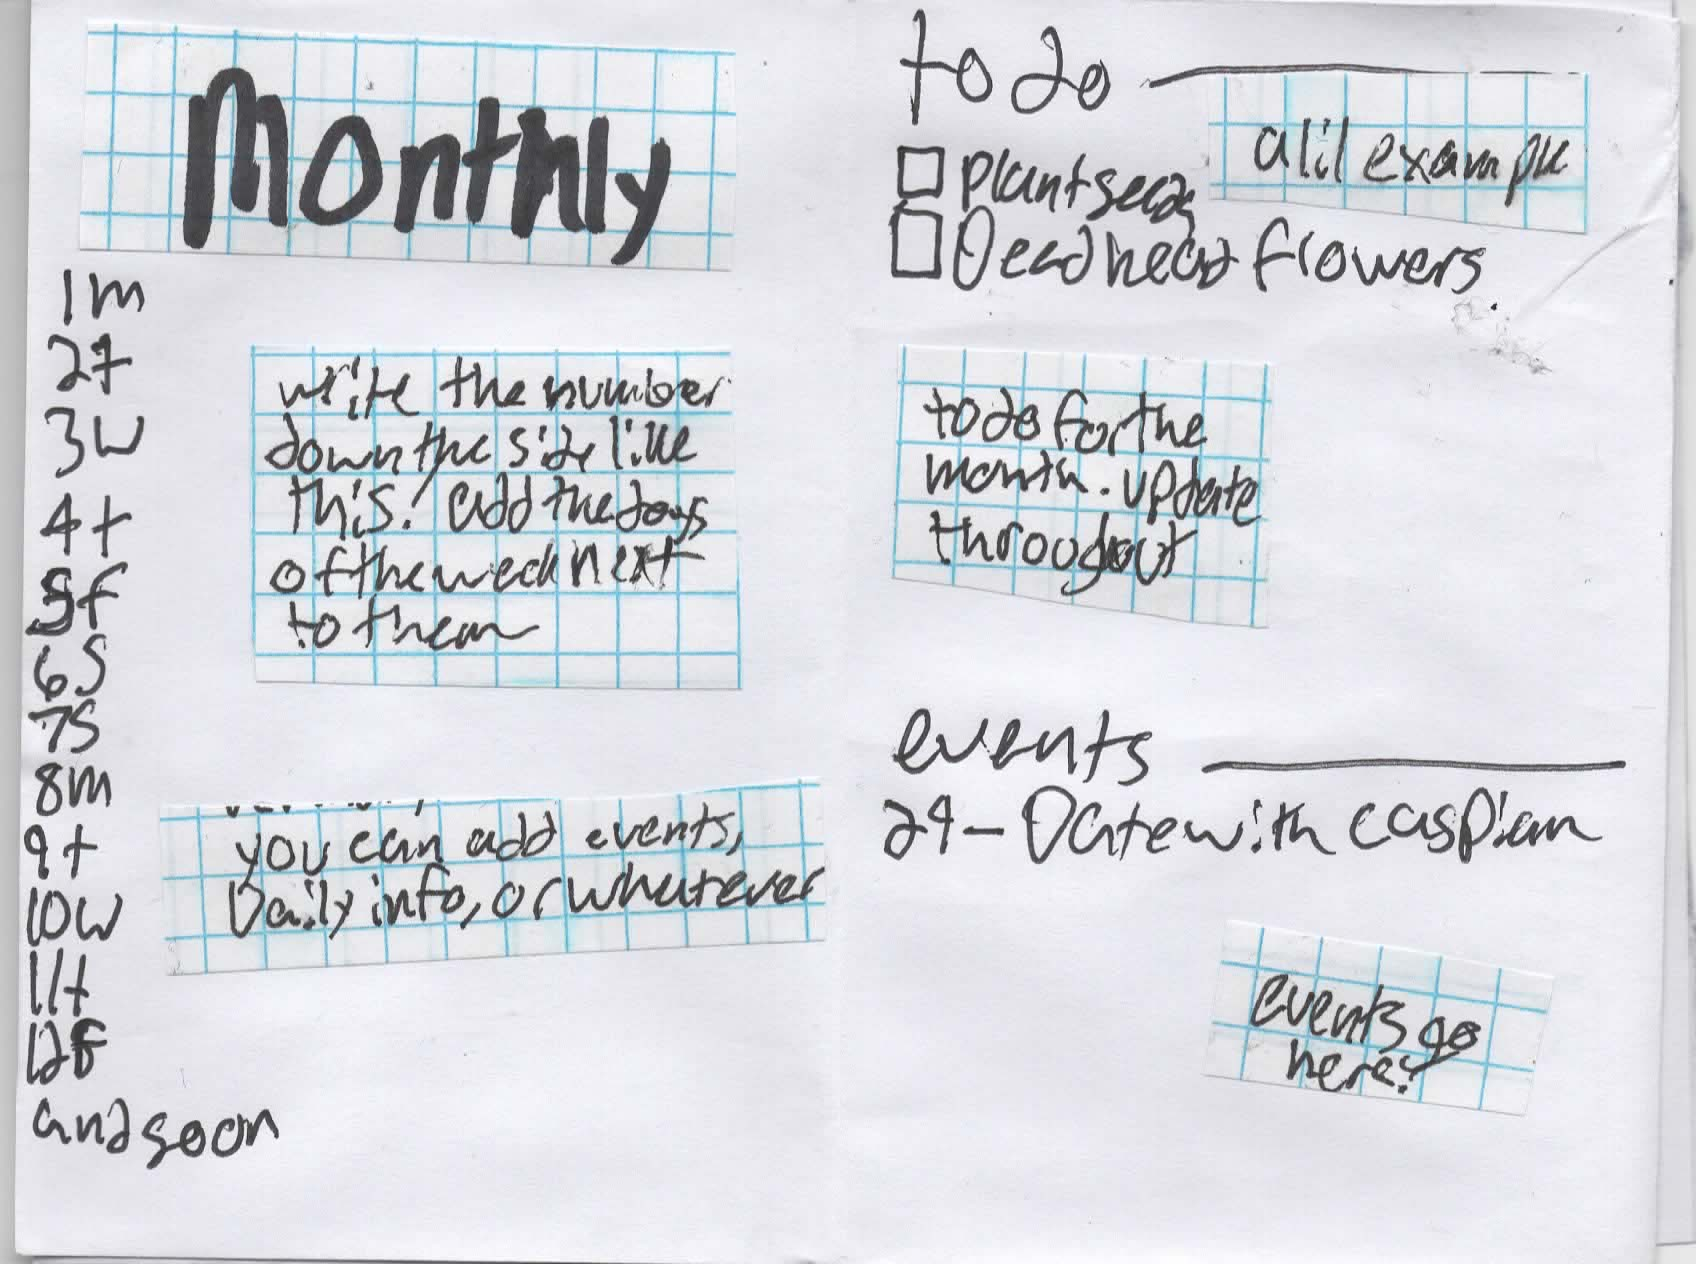 Monthly
1m
2t
3w
4t
5f
6S
7S
8m
9t
10w
11t
12f
and so on
write the number
down the side like
this! add the days
of the week next
to them
you can add events,
Daily info, or whatever
to do
a lil example
plant seeds
Deadhead flowers
to do for the
month. update
throughout
events
29 - Date with caspian
events go
here!